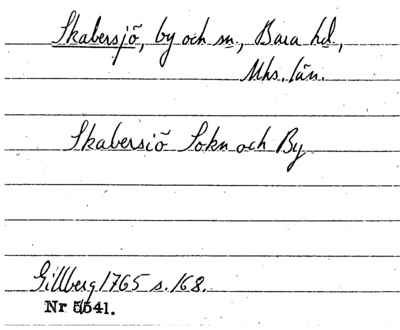 Skabersjö, by och sn., Bara hd.,
Mhs. län.
Skabersiö Sokn och By
Gillberg 1765 s. 168.
Nr 5541.